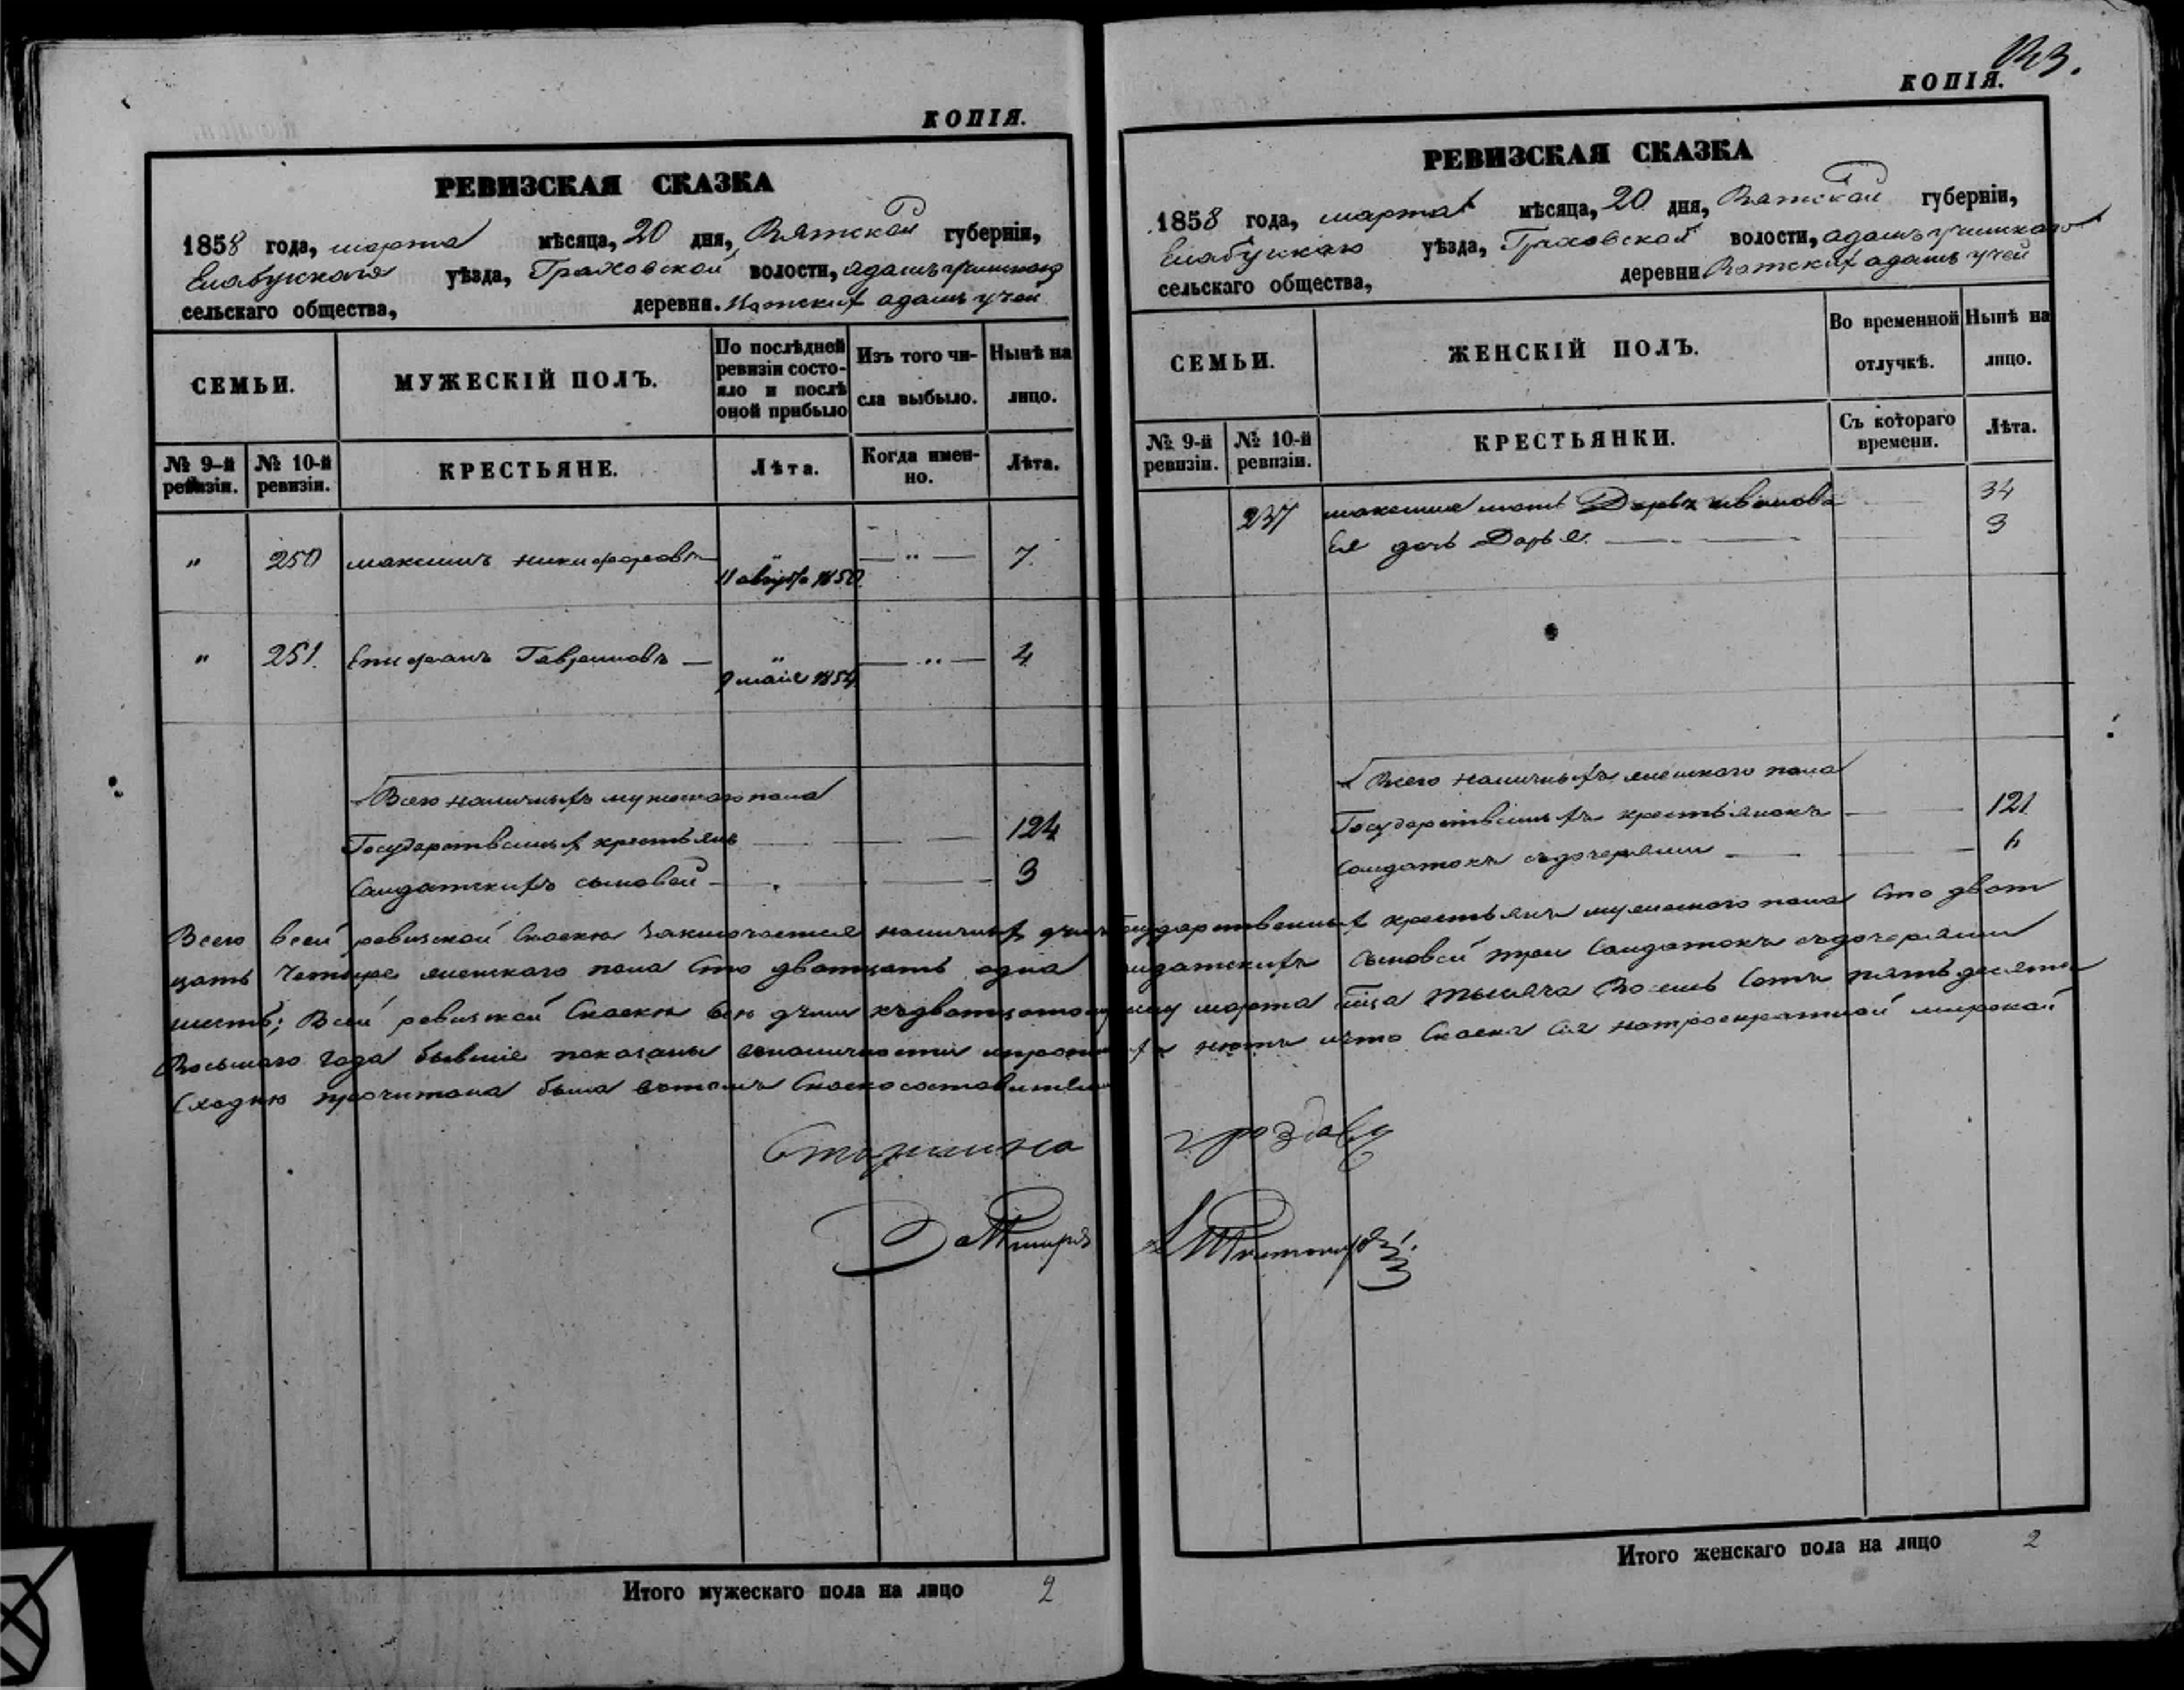 КОПІЯ.
РЕВИЗСКАЯ СКАЗКА
1858 года, марта мѣсяца, 20 дня, Вятской губерніи,
Елабужскаго уѣзда, Граховской волости, адамъучинскаго
сельскаго общества, деревни. Вотских адамъ учей
СЕМЬИ.
МУЖЕСКІЙ ПОЛЪ.
По послѣдней ревизіи состояло и послѣ оной прибыло
Изъ того числа выбыло.
Нынѣ на лицо.
№ 9-й ревизіи.
№ 10-й ревизіи.
КРЕСТЬЯНЕ.
Лѣта.
Когда именно.
Лѣта.
" 250 максимъ никифоровъ " — " — 7
11 августа 1850
" 251. Епифанъ Гавриловъ — " — " — 4
9 маія 1854
Всего наличныхъ мужескаго пола
Государственных крестьянъ 124
Салдатскихъ сыновей 3
Итого мужескаго пола на лицо 2
133.
КОПІЯ.
РЕВИЗСКАЯ СКАЗКА
1858 года, марта мѣсяца, 20 дня, Вятской губерніи,
Елабужскаго уѣзда, Граховской волости, адамъучинскаго
сельскаго общества, деревни Вотских адамъ учей
СЕМЬИ.
ЖЕНСКІЙ ПОЛЪ.
Во временной отлучкѣ.
Нынѣ на лицо.
№ 9-й ревизіи.
№ 10-й ревизіи.
КРЕСТЬЯНКИ.
Съ котораго времени.
Лѣта.
237 максима мать Дарья иванова 34
Ея дочь Дарья. 3
Всего наличныхъ женскаго пола
Государственныхъ крестьянокъ 121
Салдатокъ съдочерями 6
Всего всей ревизской Сказки заключается наличных душъ Государственных крестьянъ мужескаго пола Сто дват
цать Четыре женскаго пола Сто дватцать одна Салдатскихъ Сыновей три Салдатокъ съдочерями
шесть; Всей ревизской Сказки всѣ души къдватцатому числу марта мца тысяча Восемь Сотъ пятьдесятъ
Восьмаго года бывшіе показаны вналичности ипрописныхъ нѣтъ ичто Сказка Сія натроекратной мирской
Сходкѣ прочитана была втомъ Сказкосоставители
Старшина
Итого женскаго пола на лицо 2